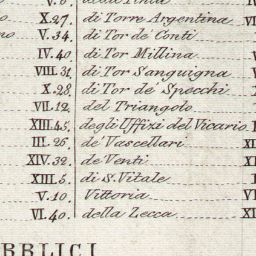 X.27. di Torre Argentina VI
V.34. di Tor de' Conti
IV.40 di Tor Millina
VIII.31. di Tor Sanguigna V
X.28. di Tor de' Specchi
VII.12. del Triangolo
XIII.45. degli Uffizi del Vicario
III.26. de' Vascellari XI
XIV.32. de Venti
XIII.5. di S. Vitale
V.10. Vittoria VI
VI.40. della Zecca XI
BBLICI